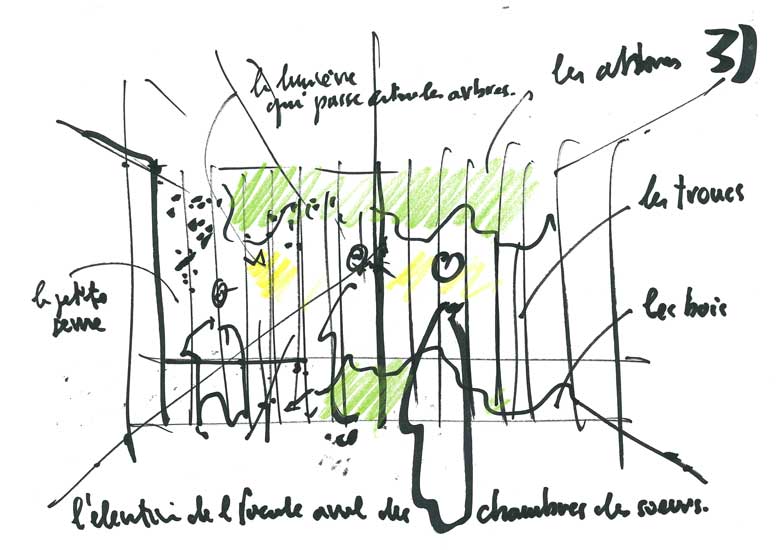 3)
les arbres
la lumière
qui passe entre les arbres.
les troncs
les bois
la petite
l'élévation de l facade aval des chambres des soeurs.